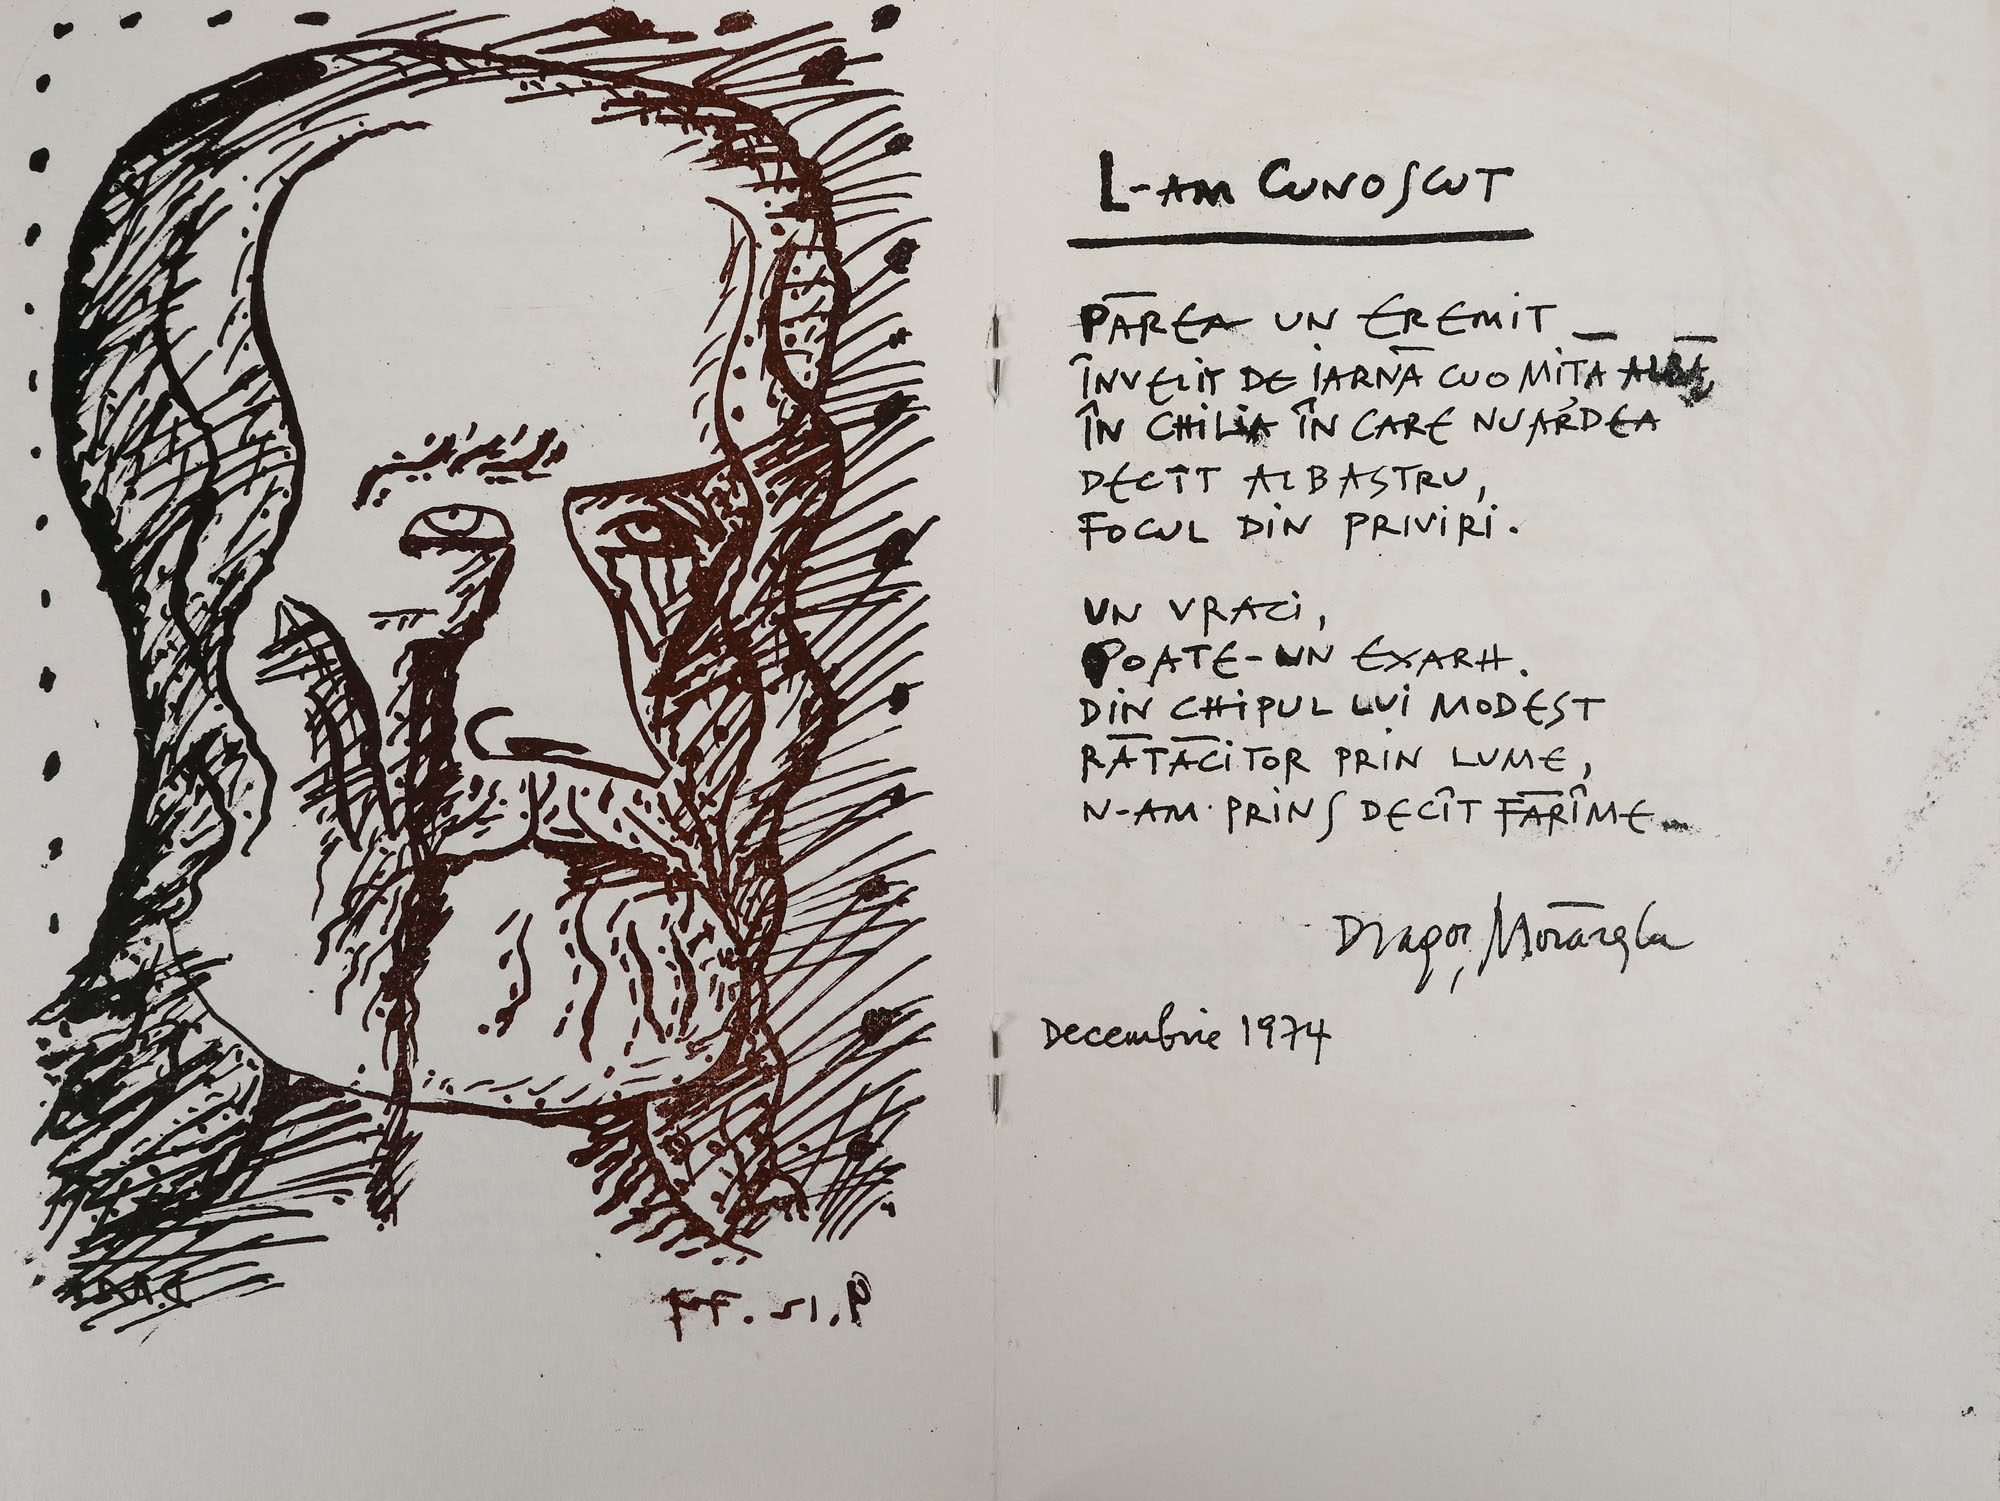 L-AM CUNOSCUT
PĂREA UN EREMIT
ÎNVELIT DE IARNĂ CU O MIȚĂ ALBĂ,
ÎN CHILIA ÎN CARE NU ARDEA
DECÎT ALBASTRU,
FOCUL DIN PRIVIRI.
UN VRACI,
POATE-UN EXARH.
DIN CHIPUL LUI MODEST
RĂTĂCITOR PRIN LUME,
N-AM PRINS DECÎT FĂRÎME
Dragoș Morărescu
Decembrie 1974
9.12.74